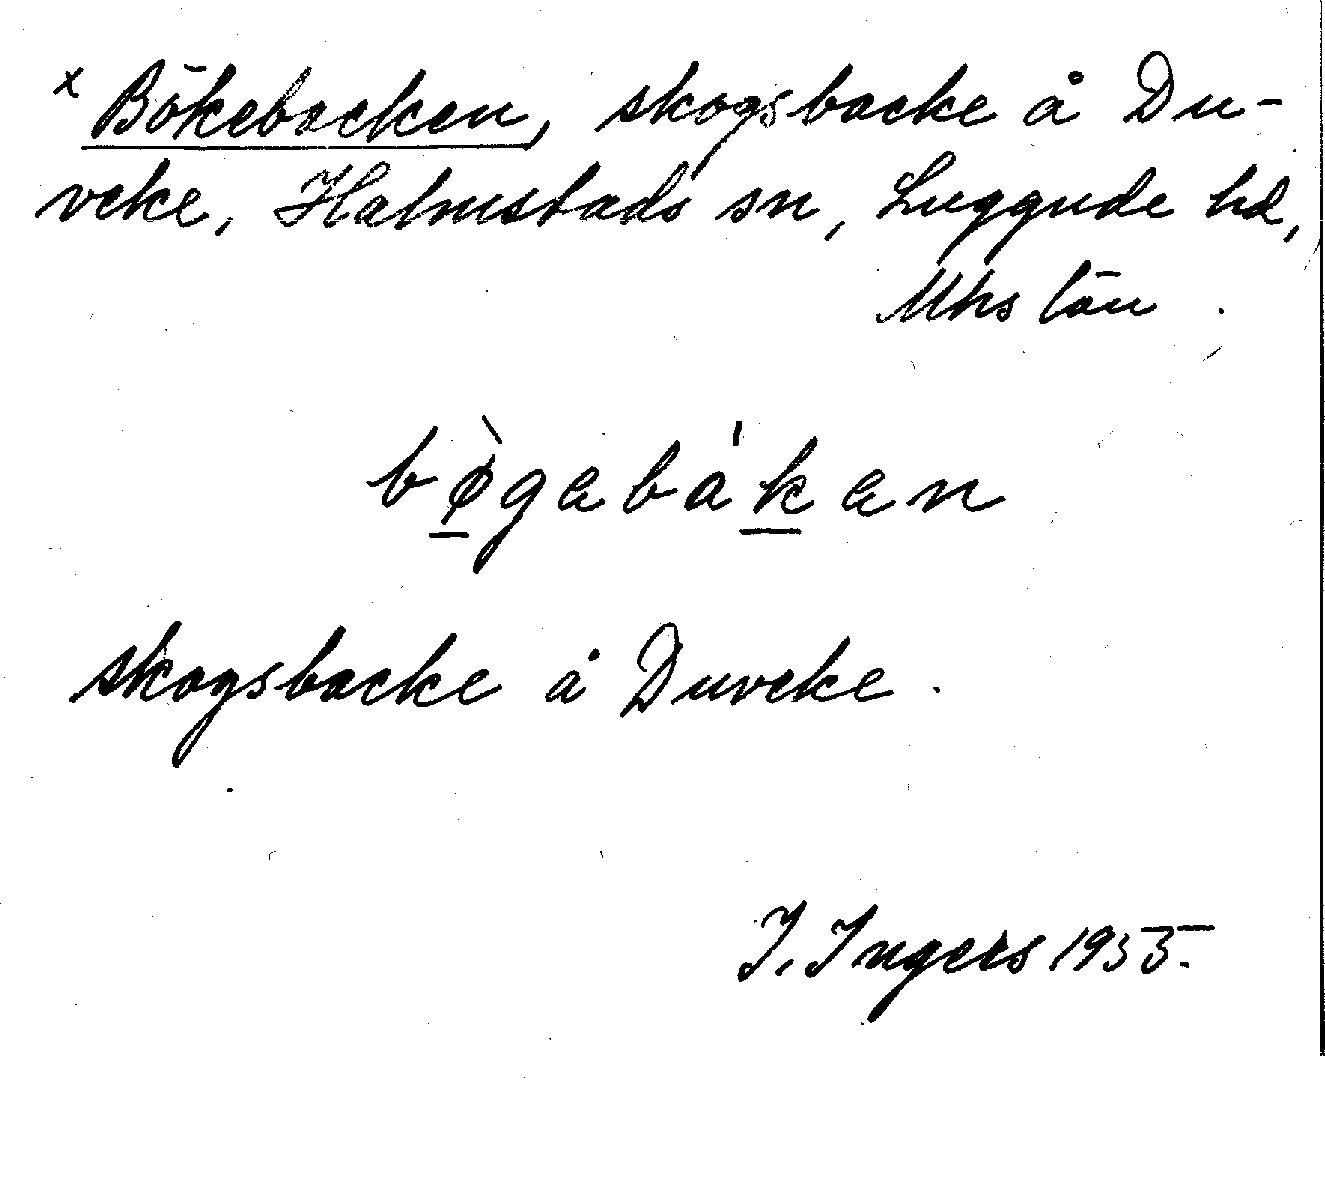 x Bökebacken, skogsbacke å Du-
veke, Halmstads sn, Luggude hd,
Mhs län.
bø̀gabákan
skogsbacke å Duveke.
I. Ingers 1955.